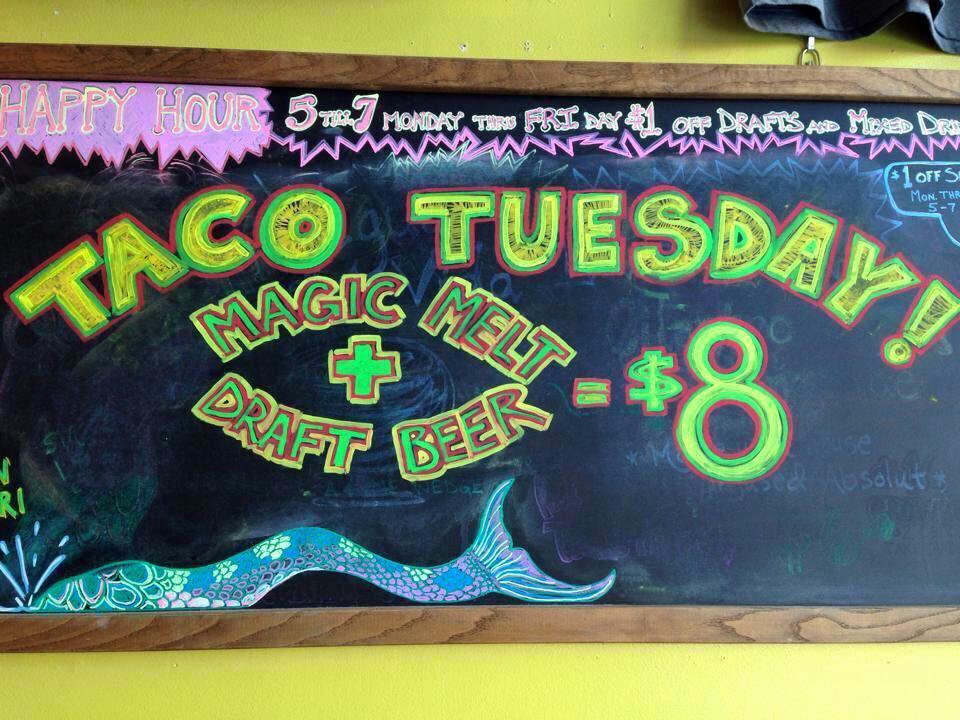 HAPPY HOUR 5 TILL 7 MONDAY THRU FRIDAY $1 OFF DRAFTS AND MIXED DRI
$1 OFF S
MON. THR
5-7
TACO TUESDAY!
MAGIC MELT
+
DRAFT BEER
= $8
N
RI